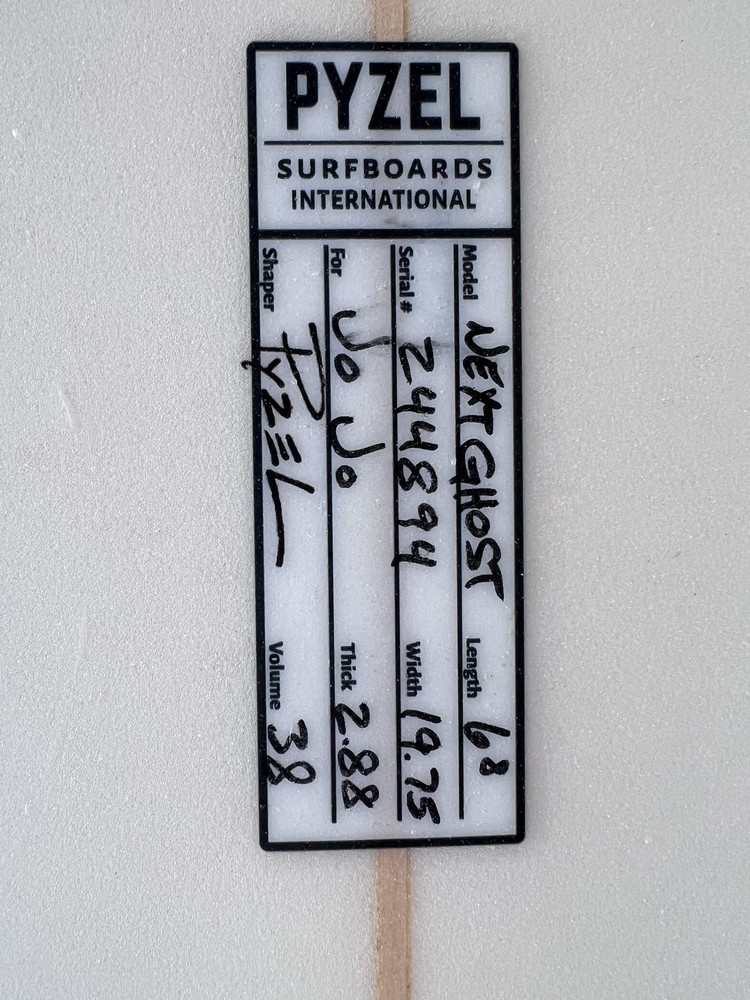 PYZEL
SURFBOARDS
INTERNATIONAL
Model NEXT GHOST Length 6 8
Serial # 244894 Width 19.75
For JoJo Thick 2.88
Shaper PYZEL Volume 38